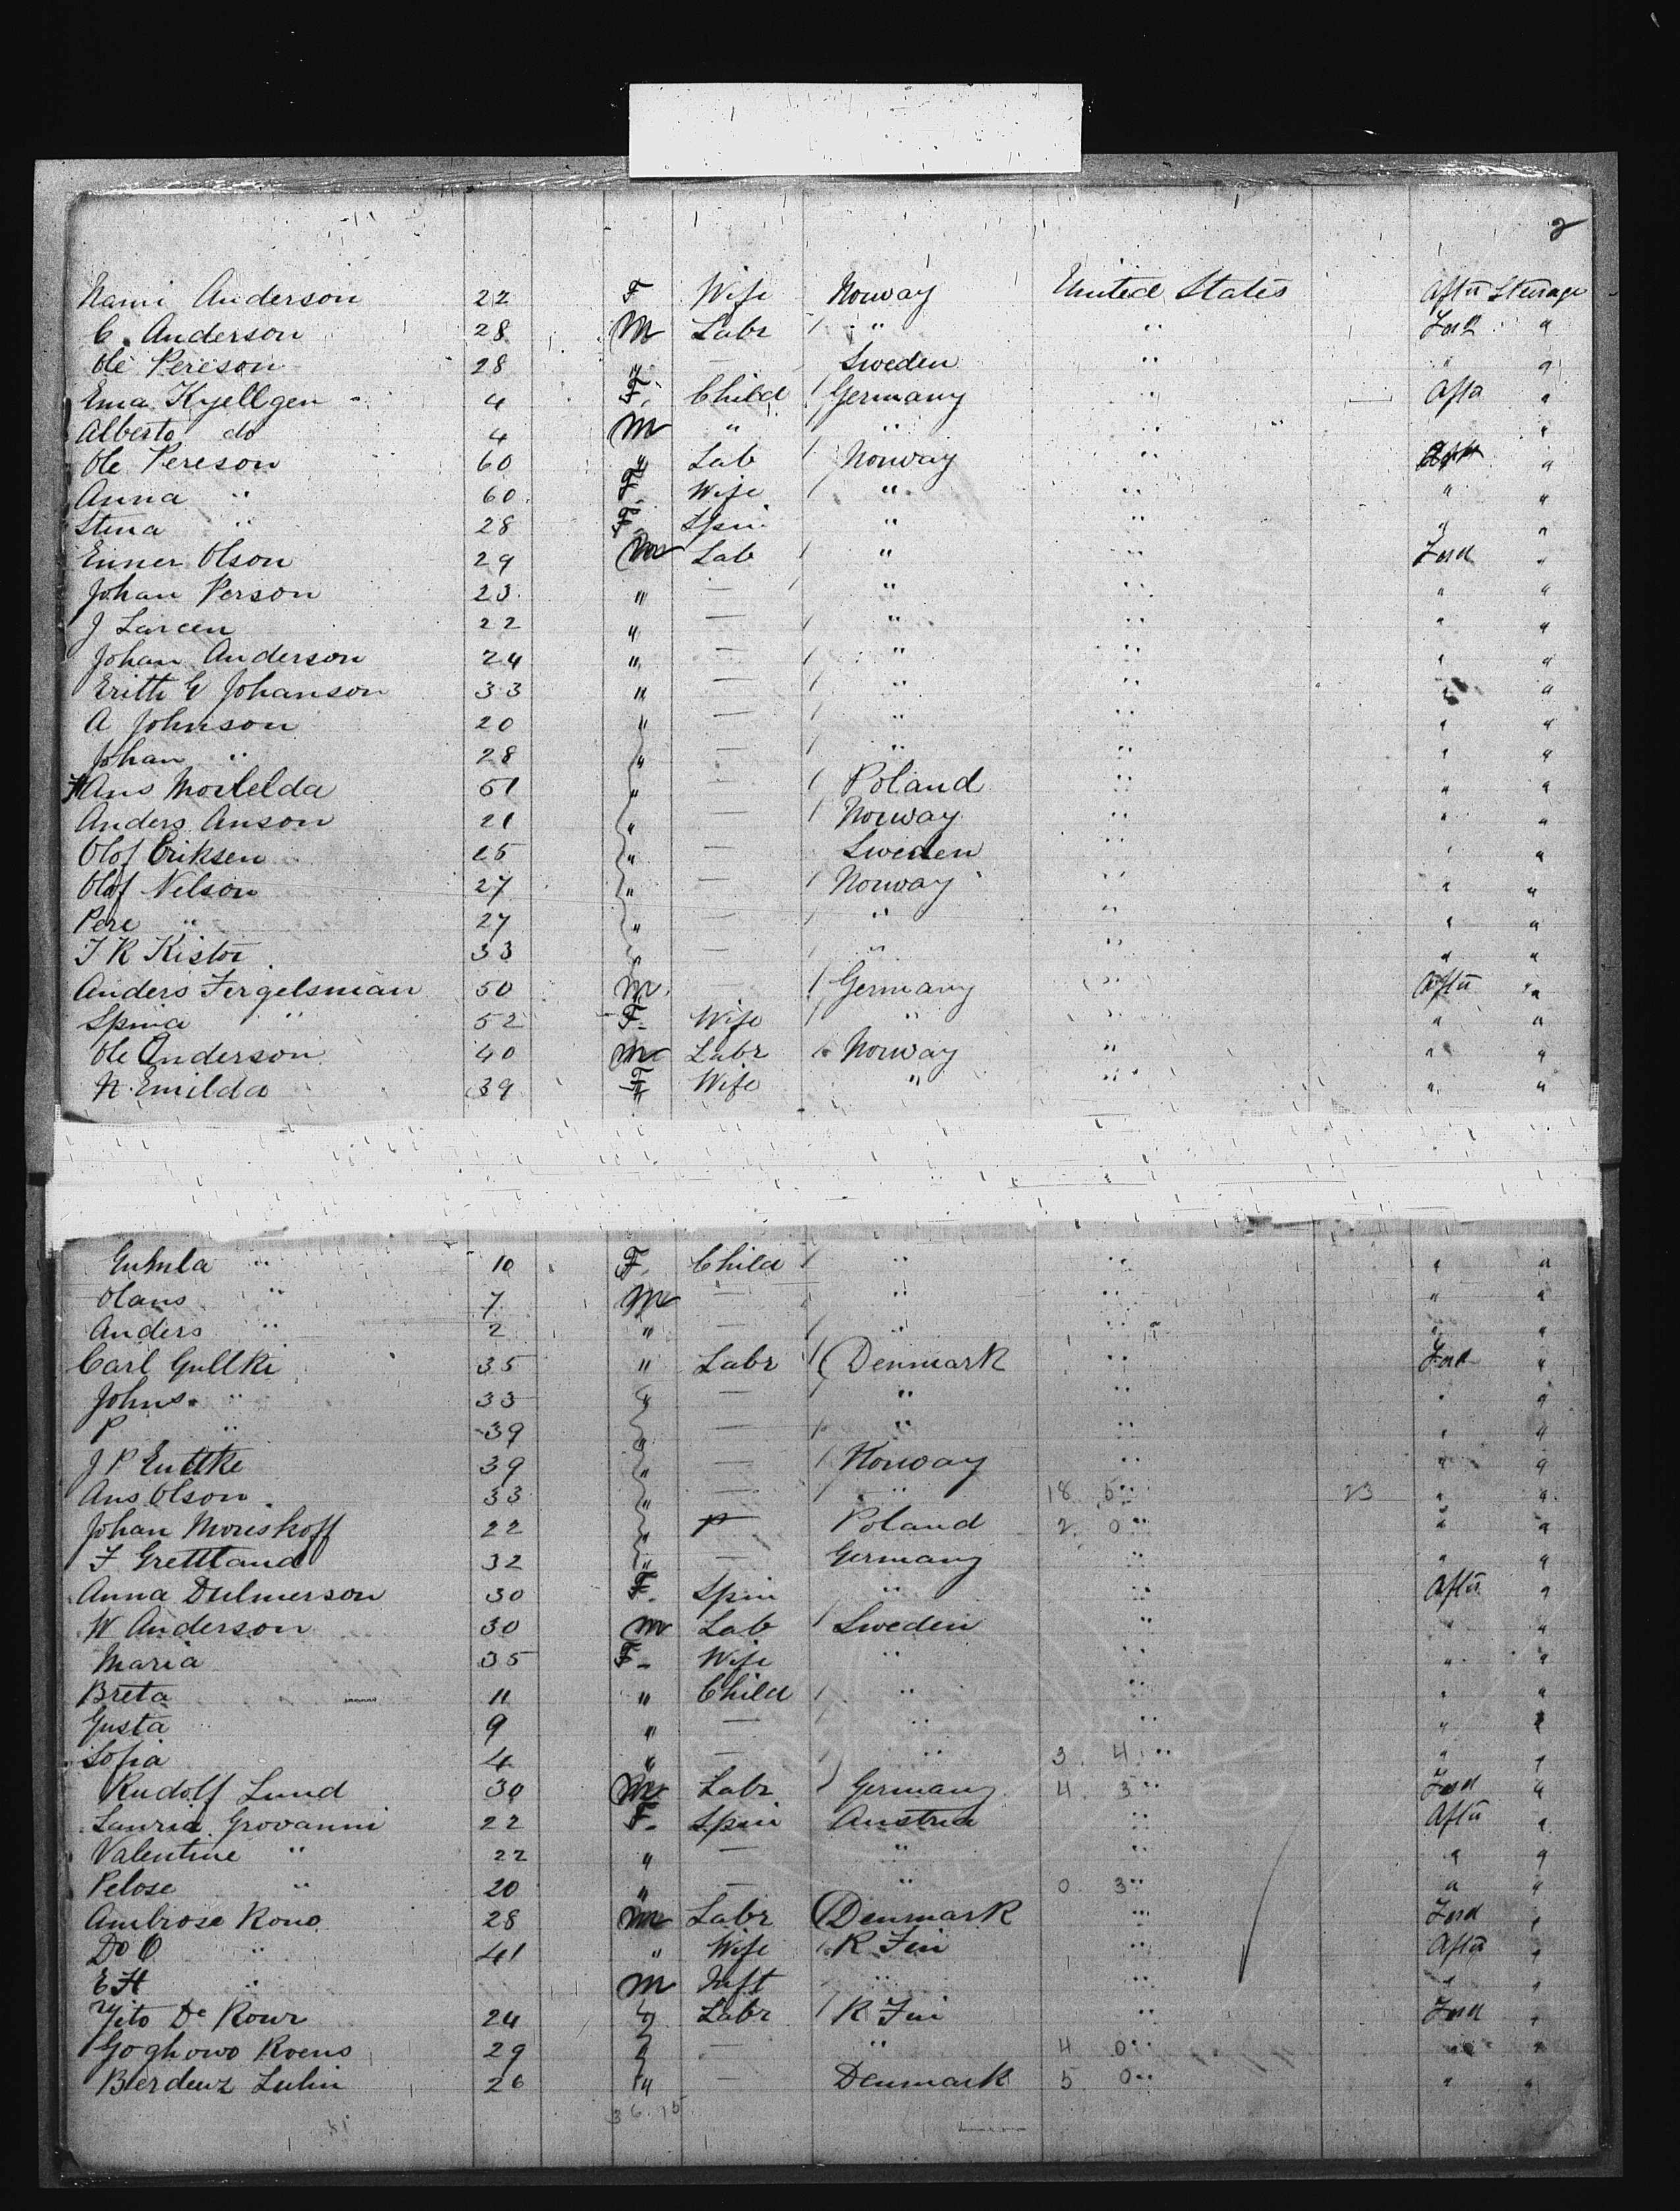 2
Nami Anderson 22 F Wife Norway United States Aftr Steerage
C. Anderson 28 M Labr / " " Ford "
Ole Pereson 28 " — Sweden " " "
Ema Kyellgen 4 F. Child / Germany " Afta "
Alberto do 4 M " / " " "
Ole Pereson 60 " Lab / Norway " "
Anna " 60 F. Wife / " " " "
Stina " 28 F. Spin " " " "
Enner Olson 29 M Lab / " " Ford "
Johan Person 23 " — / " " " "
J Larcen 22 " — / " " " "
Johan Anderson 24 " — / " " " "
Erith G Johanson 33 " — / " " " "
A Johnson 20 " — / " " " "
Johan " 28 " — / " " " "
Hans Moslelda 51 " — / Poland " " "
Anders Anson 21 " — / Norway " " "
Olof Eriksen 25 " — Sweden " " "
Olof Nelson 27 " — / Norway " " "
Pere " 27 " — / " " " "
J R Kistor 33 — / " " " "
Anders Fergelsman 50 M. / Germany " Aftr "
Spina " 52 F. Wife / " " " "
Ole Anderson 40 M Labr Norway " " "
N. Emilda 39 F Wife " " " "
" 10 F. Child / " " " "
Olans " 7 M — / " " " "
Anders " 2 " — / " " " "
Carl Gullki 35 " Labr / Denmark " Ford "
Johns " 33 " — / " " " "
P " 39 " — / " " " "
J P Enttke 39 " — / Norway " " "
Ans Olson 33 " — / " 18 5 " 23 " "
Johan Moriskoff 22 " Poland 2 0 " " "
F Grettland 32 " — Germany " " "
Anna Dulmerson 30 F. Spin " " Aftr "
W Anderson 30 M Lab / Sweden " " "
Maria 35 F. Wife " " " "
Breta 11 " Child / " " " "
Gusta 9 " — " " " "
Sofia 4 " — / " 3 4 " " "
Rudolf Lund 30 M Labr / Germany 4 3 " Ford "
Lauria Grovanni 22 F. Spin Austria " Aftr "
Valentine " 22 " — " " " "
Pelose " 20 " — " 0 3 " " "
Ambrose Rono 28 M Labr Denmark " Ford "
Do O " 41 " Wife / R Fin " Aftr "
E H " M Inft " " " "
Vito De Rowr 24 " Labr / R Fin " Ford "
Goghowo Roens 29 " — " 4 0 " " "
Berdenz Luhin 26 " — Denmark 5 0 " " "
36 15